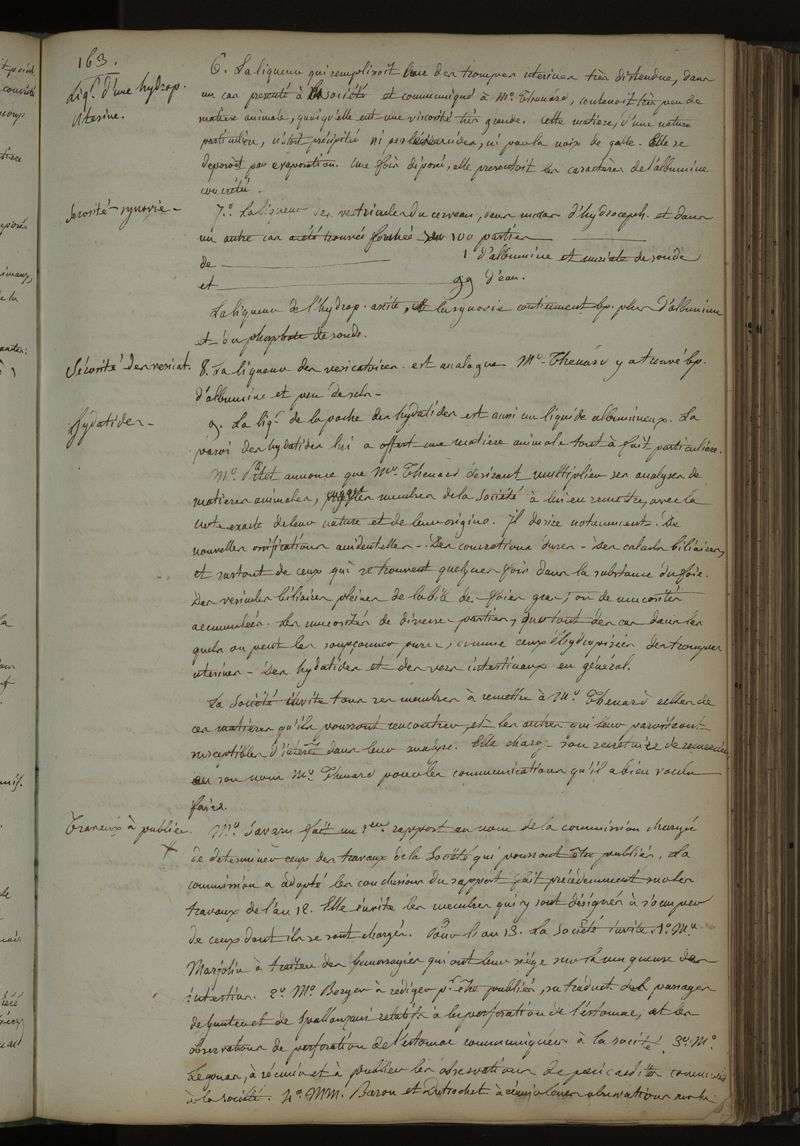 163.
Liq.^r d'une hydrop.
Uterine.
6. La liqueur qui remplissoit l'une des trompes uterines très distendue, dans
un cas presenté à la Société et communiqué à M.^r Thenard, contenoit très peu de
matiere animale, quoiqu'elle eut une viscosité très grande. Cette matiere, d'une nature
particuliere, n'étoit précipitée ni par les acides, ni par la noix de galle. Elle se
déposoit par evaporation. Une fois déposée, elle presentoit les caractères de l'albumine
concrétée.
Serosité - synovie -
7.° La liqueur des ventricules du cerveau, dans un cas d'hydroceph. et dans
un autre cas a été trouvée formée sur 100 parties
de 1 d'albumine et muriate de soude
et 99 d'eau.
La liqueur de l'hydrop. ascite, et la synovie contiennent bp. plus d'albumine
et du phosphate de soude.
Sérosité des vesicat.
8. La liqueur des vesicatoires est analogue. M.^r Thenard y a trouvé bp.
d'albumine et peu de sels -
Hydatides -
9. La liq.^r de la poche des hydatides est aussi un liquide albumineux. La
paroi des hydatides lui a offert une matiere animale tout à fait particuliere.
M.^r Petit annonce que M.^r Thenard desirant multiplier ses analyses de
matieres animales, les membres de la Société à lui en remettre, avec la
note exacte de leur nature et de leur origine. Il desire notamment. De
nouvelles ossifications accidentelles - Des concretions dures - Des calculs biliaires,
et surtout de ceux qui se trouvent quelques fois dans la substance du foie.
Des vesicules biliaires pleines de la bile des foies gras, ou de mucosités
accumulées. Des mucosités de diverses parties, surtout des cas dans les
quels on peut les soupçonner pures, comme ceux d'hydropisies des trompes
uterines - Des hydatides et des vers intestinaux en général.
La Société invite tous ses membres à remettre à M.^r Thenard celles de
ces matieres qu'ils pourront rencontrer, et les autres qui leur paroitront
susceptibles d'interêt dans leur analyse. Elle charge son secretaire de remercier
en son nom M.^r Thenard pour les communications qu'il a bien voulu
faire.
Travaux à publier.
M.^r Savary fait un 1.^er rapport au nom de la commission chargée
de determiner ceux des travaux de la Société qui pourront être publiés. La
commission a adopté les conclusions du rapport fait précédemment sur les
travaux de l'an 12. Elle invite les membres qui y sont désignés à s'occuper
de ceux dont ils se sont chargés. Pour l'an 13. La Société invite. 1.° M.^r
Marjolin à traiter des hemorragies qui ont leur siège sur la muqueuse des
intestins. 2.° M.^r Berger à rediger p.^r être publiés, sa traduct. des passages
de hunter et de Spallanzani relatifs à la perforation de l'estomac, et les
observations de perforation de l'estomac communiquées à la société. 3.° M.^r
Legouas, à réunir et à publier les observations de pericardites communiq
à la société. 4.° MM. Baron et Dutrochet à réunir leurs observations sur la